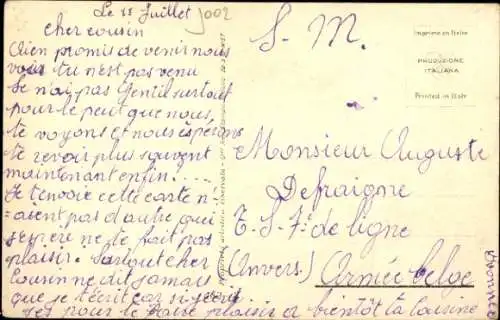 Le 11 Juillet
J002
cher cousin
Bien promis de venir nous
voir tu n'est pas venu
Se n'ai pas Gentil surtout
pour le peut que nous
te voyons et nous espérons
te revoir plus souvent
maintenant enfin....
Je tenvoie cette carte n'
=aient pas d'autre qui
s'espère ne te fait pas
plaisir. Surtout cher
Cousin ne dit jamais
que se t'écrit car si
ses pour te faire plaisir a bientôt ta Cousine
S. M.
Imprimé en Italie
PRODUZIONE
ITALIANA
Printed in Italy
Monsieur Auguste
Defraigne
T. S. 7e de ligne
(Anvers.) Armée belge